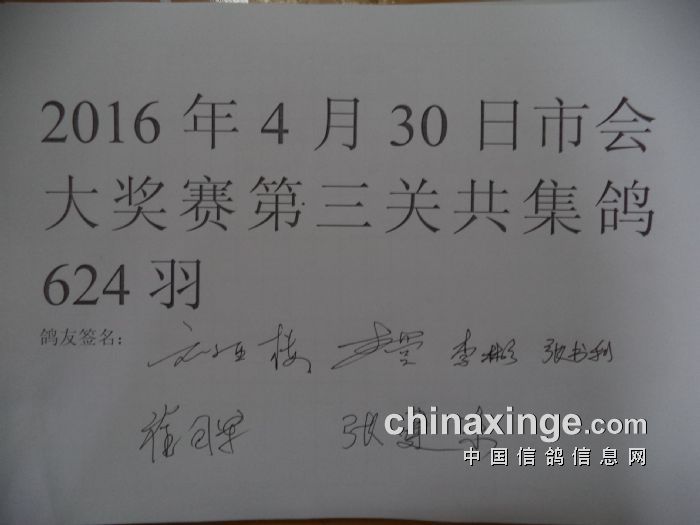 2016 年 4 月 30 日市会
大奖赛第三关共集鸽
624 羽
鸽友签名： 李彬 张书利
张
chinaxinge.com
中国信鸽信息网